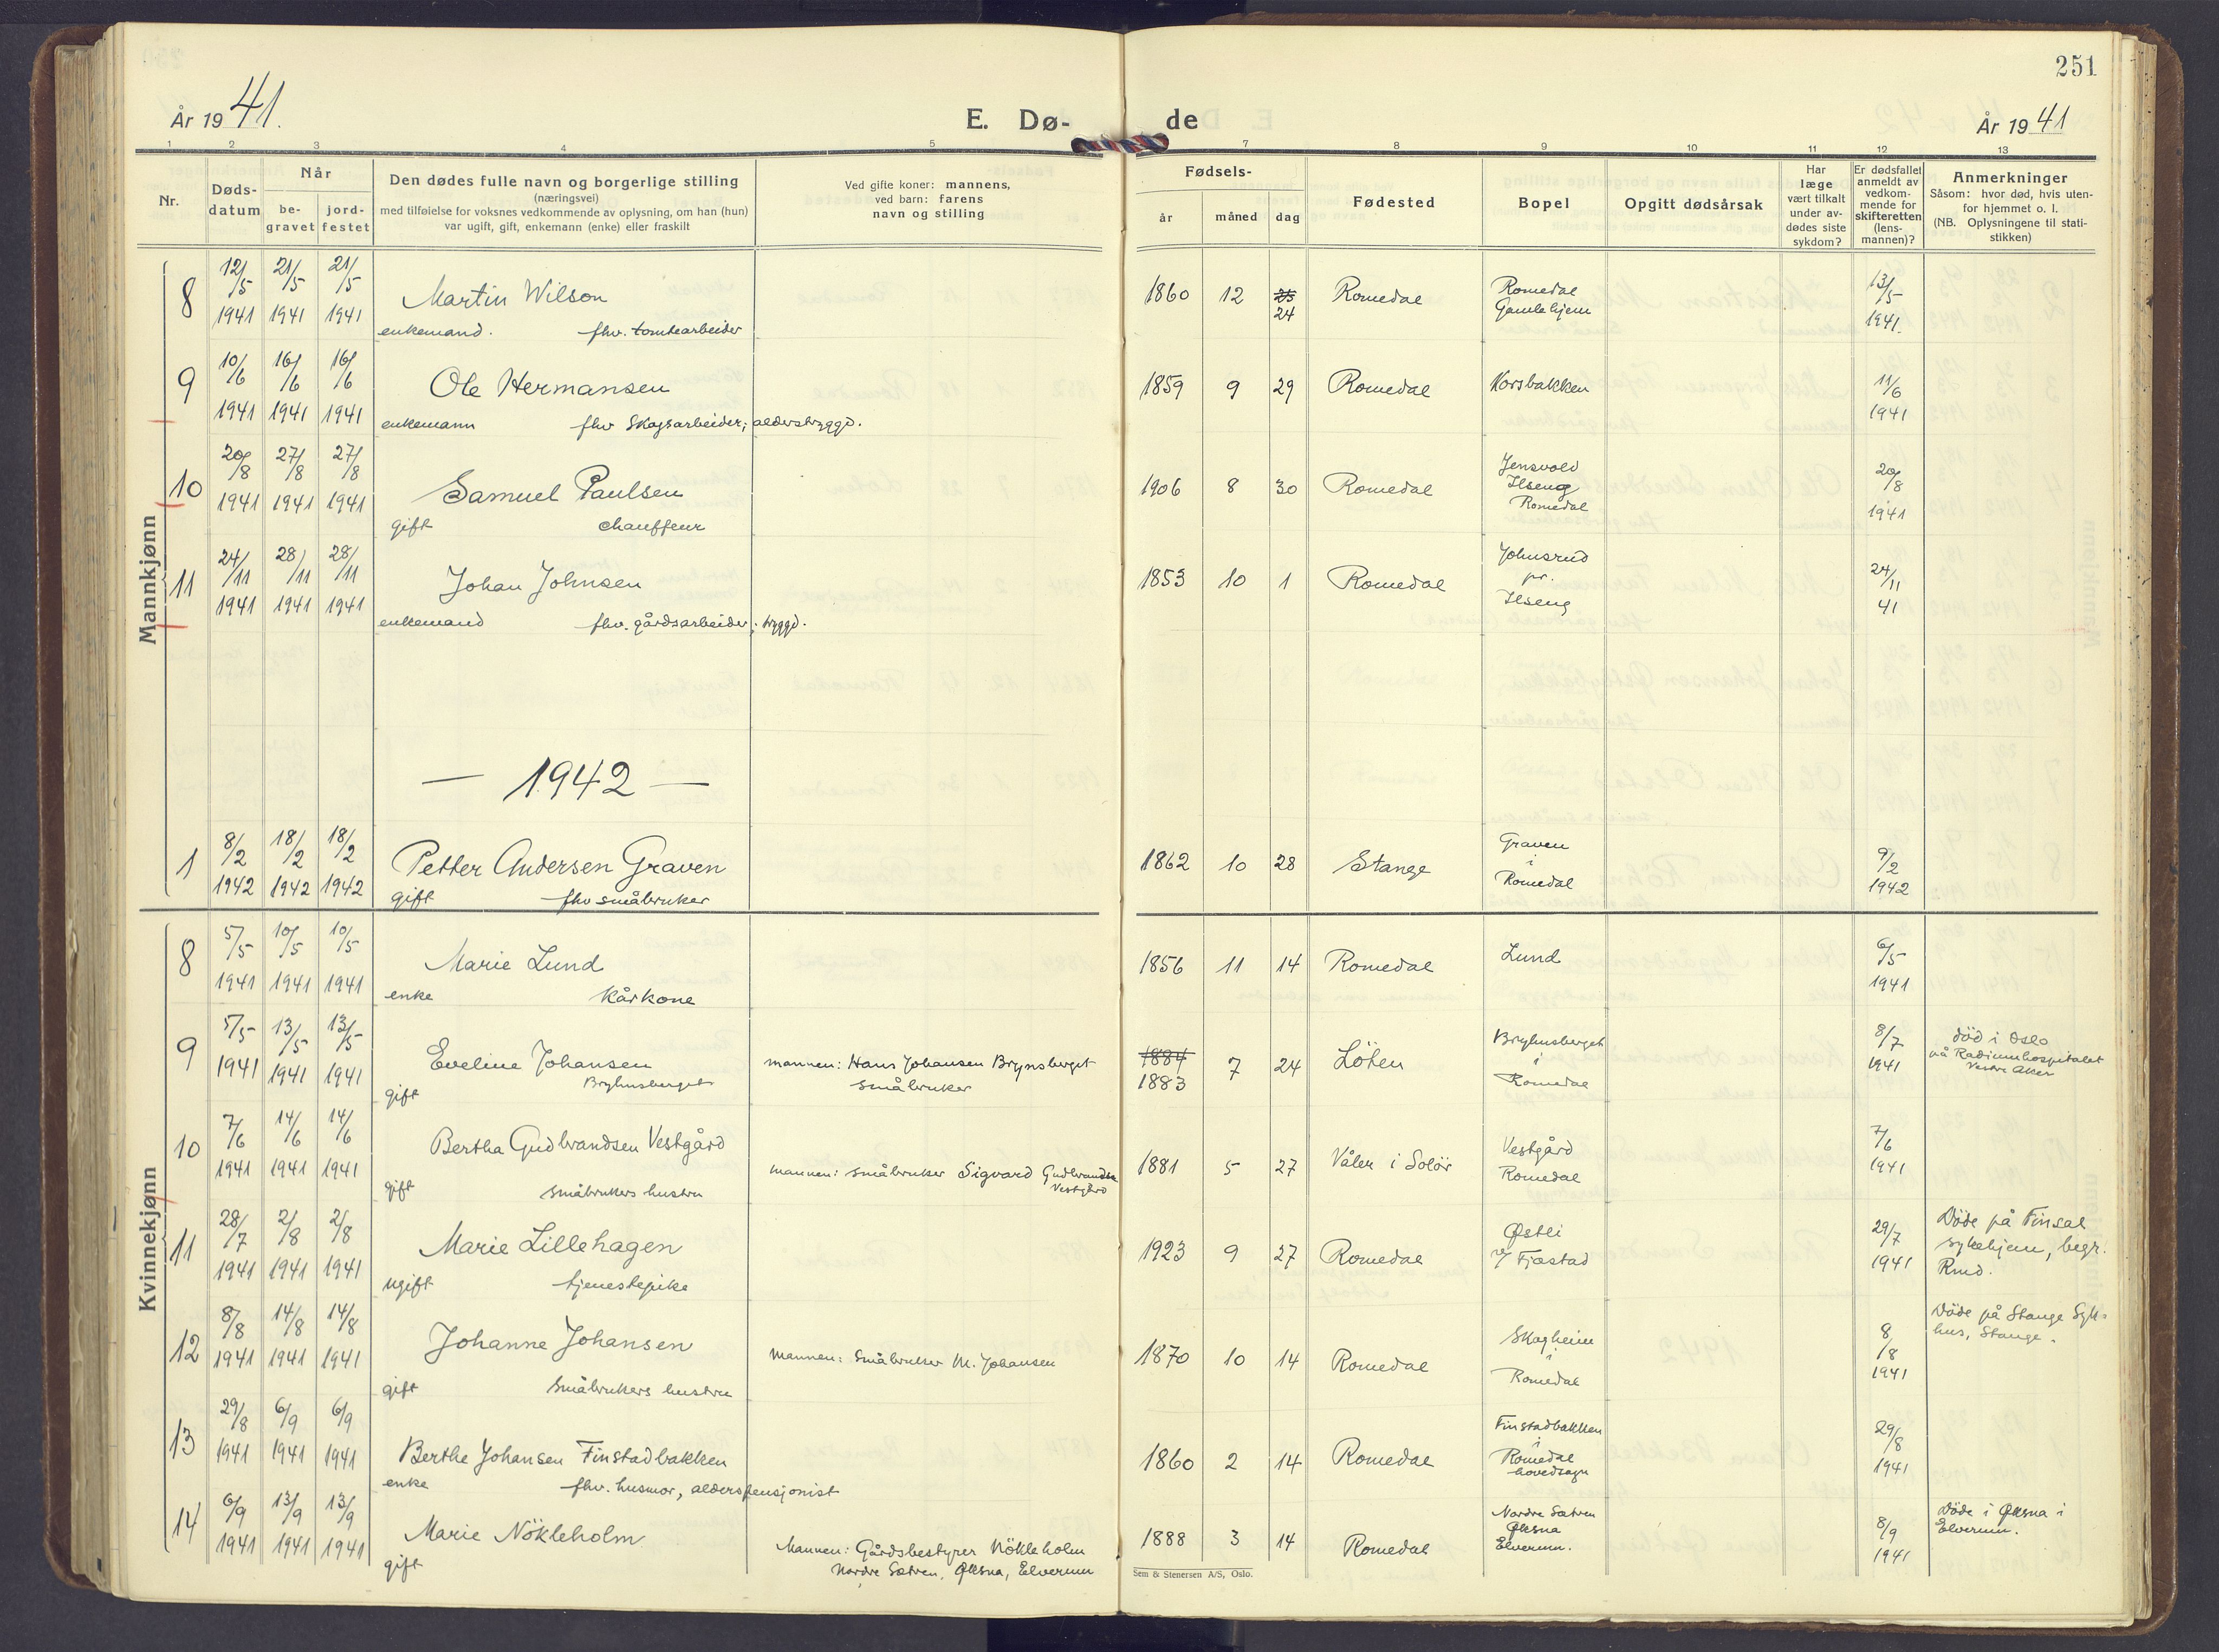 251
År 1941.
E. Dø-
de
År 1941
1 2 3 4 5 7 8 9 10 11 12 13
Nr.
Døds-
datum
Når
be-
gravet
jord-
festet
Den dødes fulle navn og borgerlige stilling
(næringsvei)
med tilføielse for voksnes vedkommende av oplysning, om han (hun)
var ugift, gift, enkemann (enke) eller fraskilt
Ved gifte koner: mannens,
ved barn: farens
navn og stilling
Fødsels-
år måned dag
Fødested
Bopel
Opgitt dødsårsak
Har
læge
vært tilkalt
under av-
dødes siste
sykdom?
Er dødsfallet
anmeldt av
vedkom-
mende for
skifteretten
(lens-
mannen)?
Anmerkninger
Såsom: hvor død, hvis uten-
for hjemmet o. l.
(NB. Oplysningene til stati-
stikken)
Mannkjønn
8 12/5 1941 21/5 1941 21/5 1941 Martin Wilson
enkemand. fhv. tomtearbeider
1860 12 25 24 Romedal Romedal
Gamlehjem
13/5 1941.
9 10/6 1941 16/6 1941 16/6 1941 Ole Hermansen
enkemann fhv Skogsarbeider; alderstrygd.
1859 9 29 Romedal Korsbakken 11/6 1941
10 20/8 1941 27/8 1941 27/8 1941 Samuel Paulsen
gift chauffeur
1906 8 30 Romedal Jensvold
Ilseng
Romedal
20/8 1941
11 24/11 1941 28/11 1941 28/11 1941 Johan Johnsen
enkemand fhv. gårdsarbeider; trygd.
1853 10 1 Romedal Johnsrud
pr.
Ilseng
24/11 41
— 1942 —
1 8/2 1942 18/2 1942 18/2 1942 Petter Andersen Graven
gift fhv småbruker
1862 10 28 Stange Graven
i
Romedal
9/2 1942
Kvinnekjønn
8 5/5 1941 10/5 1941 10/5 1941 Marie Lund
enke Kårkone
1856 11 14 Romedal Lund 6/5 1941
9 5/5 1941 13/5 1941 13/5 1941 Eveline Johansen
Bryhnsberget
gift
mannen: Hans Johansen Brynsberget
småbruker
1884 1883 7 24 Löten Bryhnsberget
i
Romedal
8/7 1941
död i Oslo
på Radiumhospitalet
Vestre Aker
10 7/6 1941 14/6 1941 14/6 1941 Bertha Gudbrandsen Vestgård
gift småbrukers hustru
mannen: småbruker Sigvard Gudbrandsen
Vestgård
1881 5 27 Våler i Solör Vestgård
Romedal
7/6 1941
11 28/7 1941 2/8 1941 2/8 1941 Marie Lillehagen
ugift tjenestepike
1923 9 27 Romedal Østli
v/ Fjæstad
29/7 1941
Döde på Finsal
sykehjem, begr.
Rmd.
12 8/8 1941 14/8 1941 14/8 1941 Johanne Johansen
gift småbrukers hustru
Mannen: Småbruker M. Johansen
1870 10 14 Romedal Skogheim
i
Romedal
8/8 1941
Döde på Stange Syk-
hus, Stange.
13 29/8 1941 6/9 1941 6/9 1941 Berthe Johansen Finstadbakken
enke fhv. husmor, alderspensjonist
1860 2 14 Romedal Finstadbakken
i
Romedal
hovedsogn
29/8 1941
14 6/9 1941 13/9 1941 13/9 1941 Marie Nökleholm
gift
Mannen: Gårdsbestyrer Nökleholm
Nordre Sætren, Øksna, Elverum
1888 3 14 Romedal Nordre Sætren
Øksna
Elverum.
8/9 1941
Döde i Øksna i
Elverum.
Sem & Stenersen A/S, Oslo.